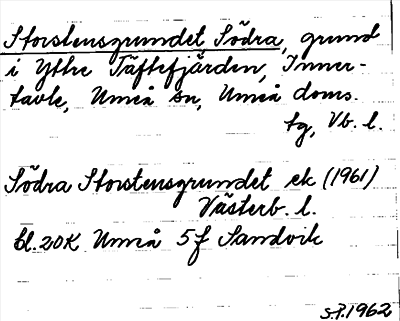 Storstensgrundet, Södra, grund
i Yttre Täftefjärden, Inner-
tavle, Umeå sn, Umeå doms.
tg, Vb. l.
Södra Storstensgrundet ek (1961)
Västerb. l.
bl. 20K Umeå 5f Sandvik
S.P. 1962